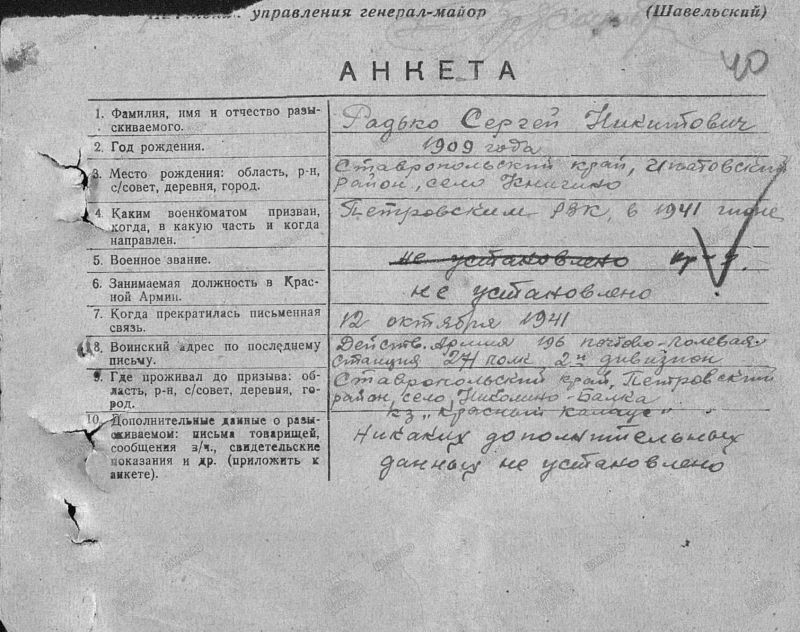 управления генерал-майор (Шавельский)
40
АНКЕТА
1. Фамилия, имя и отчество разы-
скиваемого.
Радько Сергей Никитович
2. Год рождения.
1909 года
3. Место рождения: область, р-н,
с/совет, деревня, город.
Ставропольский край, Ипатовский
район, село Кничино
4. Каким военкоматом призван,
когда, в какую часть и когда
направлен.
Петровским РВК, в 1941 июне
5. Военное звание.
не установлено кр-ц.
6. Занимаемая должность в Крас-
ной Армии.
не установлено
7. Когда прекратилась письменная
связь.
12 октября 1941
8. Воинский адрес по последнему
письму.
Действ. Армия 196 почтово-полевая
станция 271 полк 2й дивизион
9. Где проживал до призыва: об-
ласть, р-н, с/совет, деревня, го-
род.
Ставропольский край, Петровский
район, село, Николино-Балка
кз „Красный Калаус"
10. Дополнительные данные о разы-
скиваемом: письма товарищей,
сообщения в/ч., свидетельские
показания и др. (приложить к
анкете).
Никаких дополнительных
данных не установлено